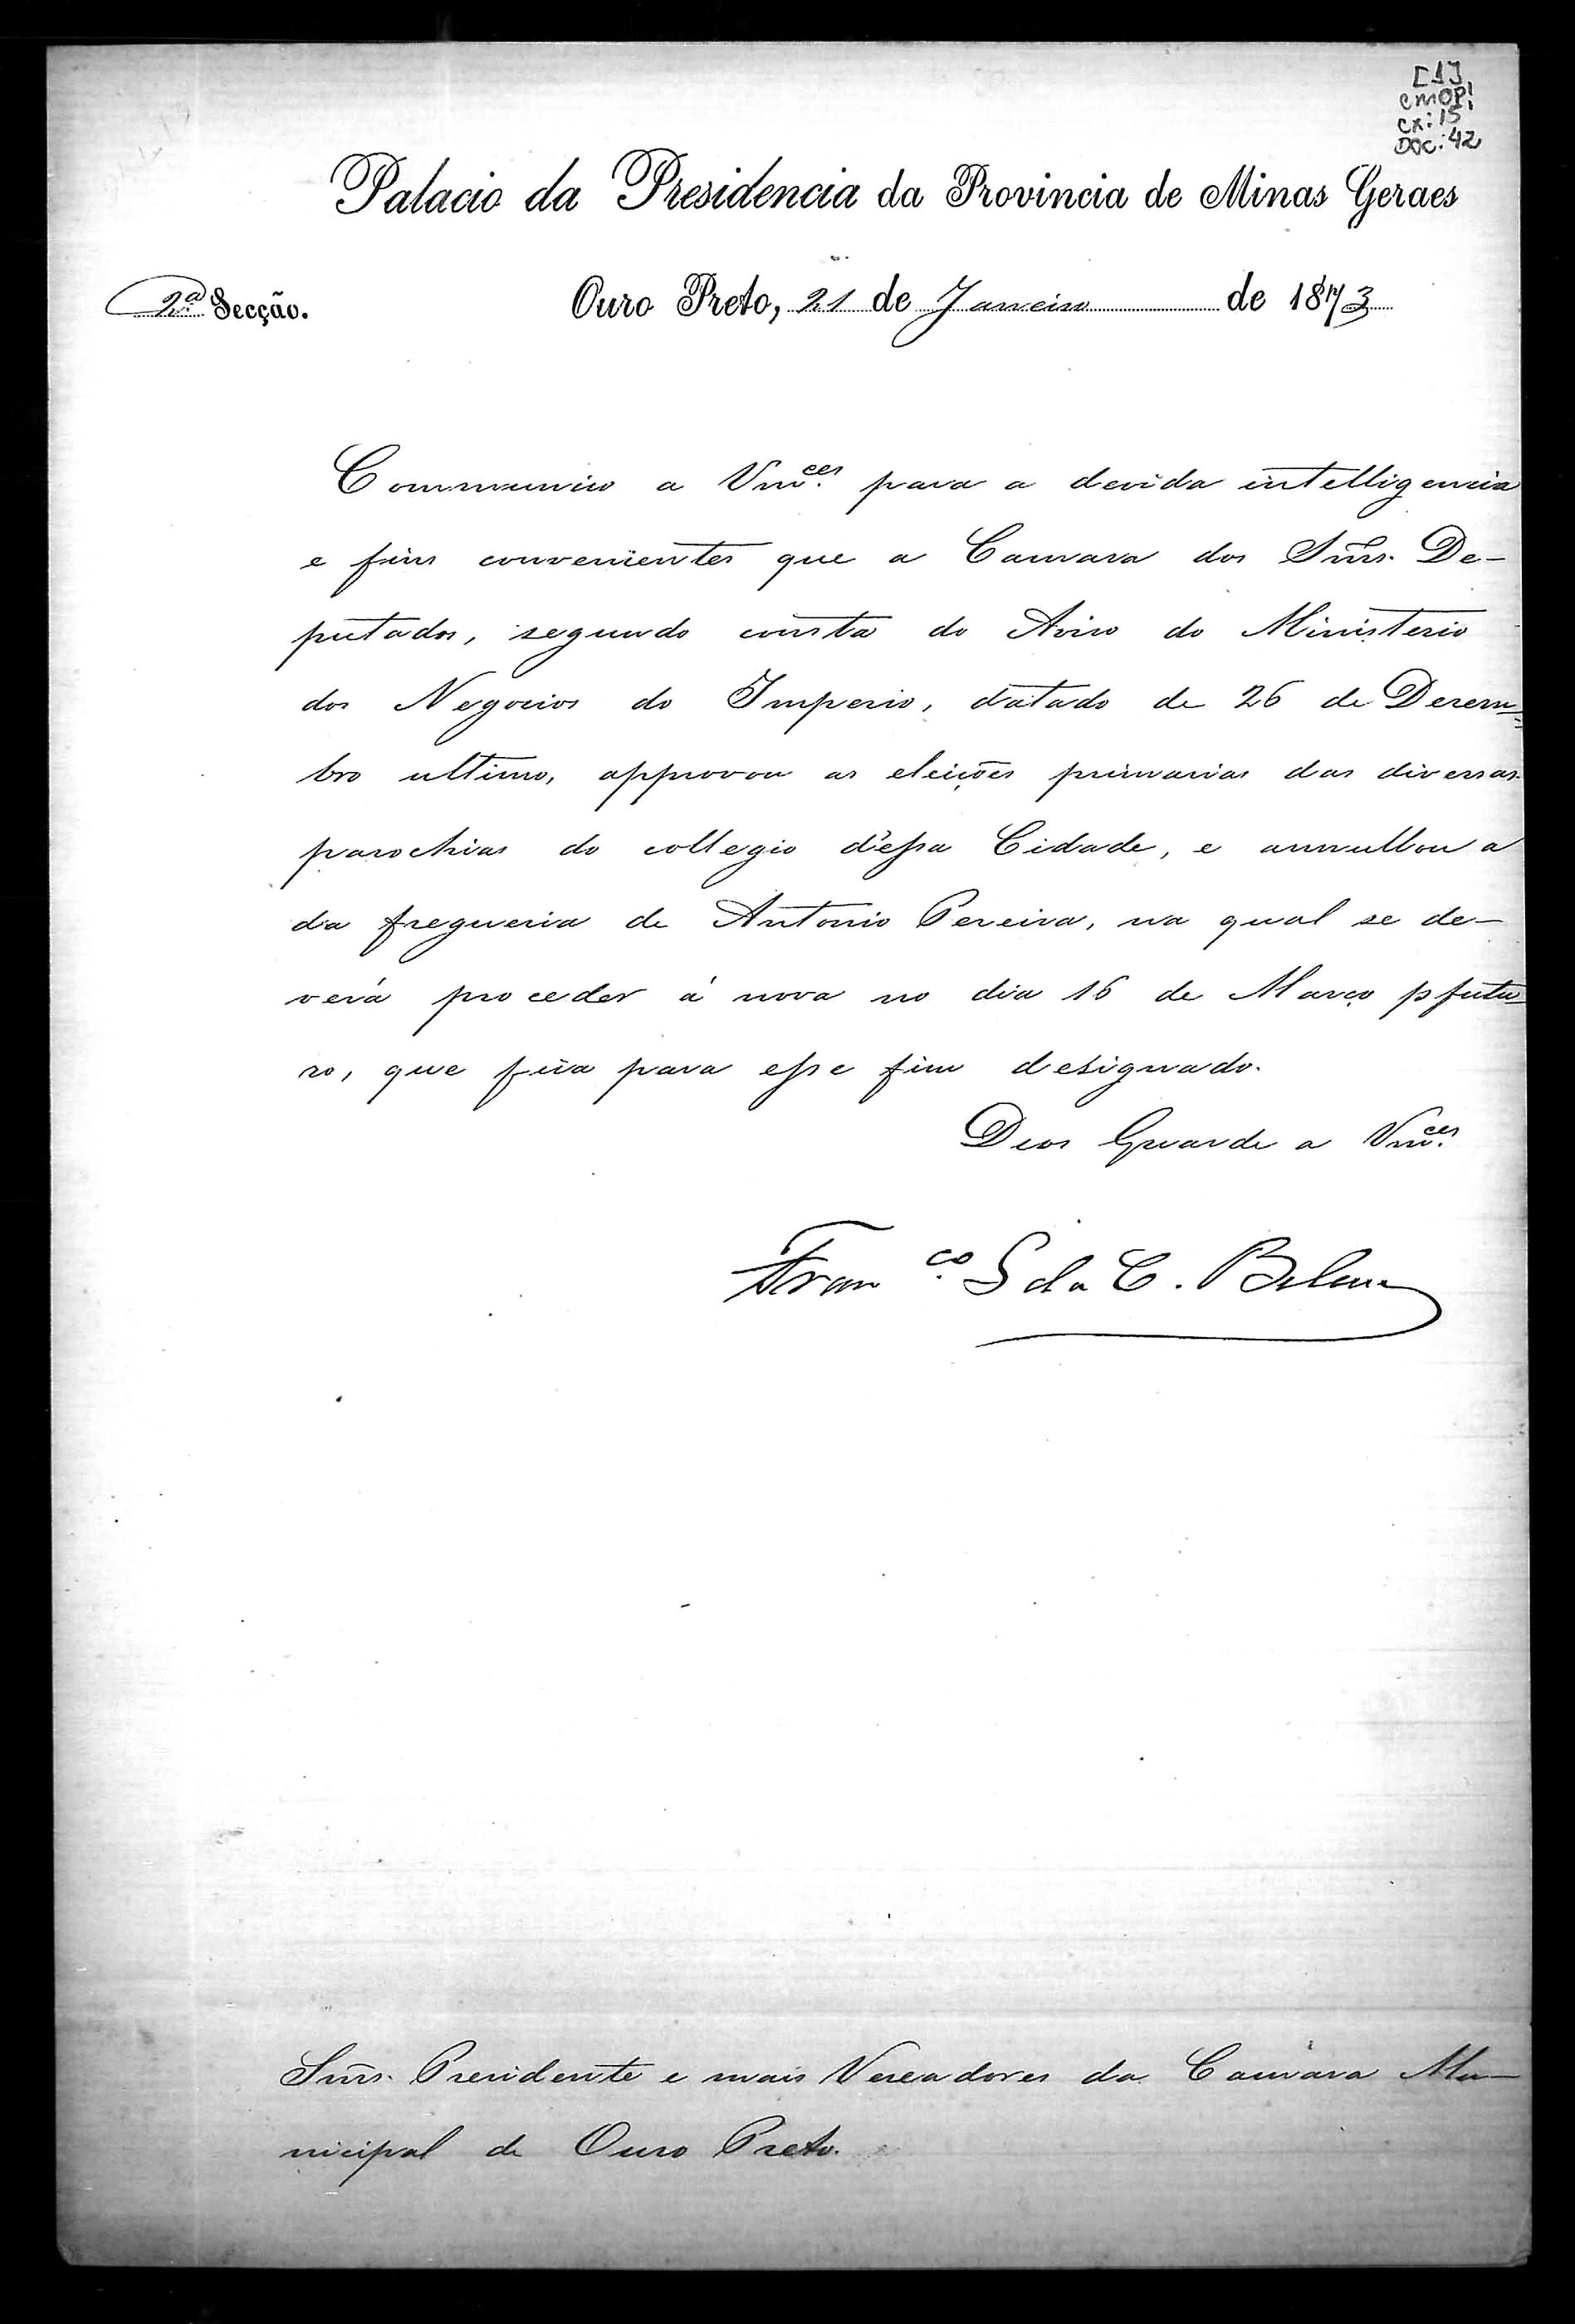 [1]
CMOP!
CX: 15
DOC: 42
Palacio da Presidencia da Provincia de Minas Geraes
2ª Secção.
Ouro Preto, 21 de Janeiro de 1873
Communico a Vm.ces para a devida intelligencia
e fins convenientes que a Camara dos Snrs. De-
putados, segundo consta do Aviso do Ministerio
dos Negocios do Imperio, datado de 26 de Dezem=
bro ultimo, approvou as eleições primarias das diversas
parochias do collegio d'essa Cidade, e annullou a
da freguezia de Antonio Pereira, na qual se de-
verá proceder á nova no dia 16 de Março p futu=
ro, que fica para esse fim designado.
Deos Guarde a Vm.ces
Fran.co S da C. Belem
Snrs. Presidente e mais Vereadores da Camara Mu-
nicipal de Ouro Preto.